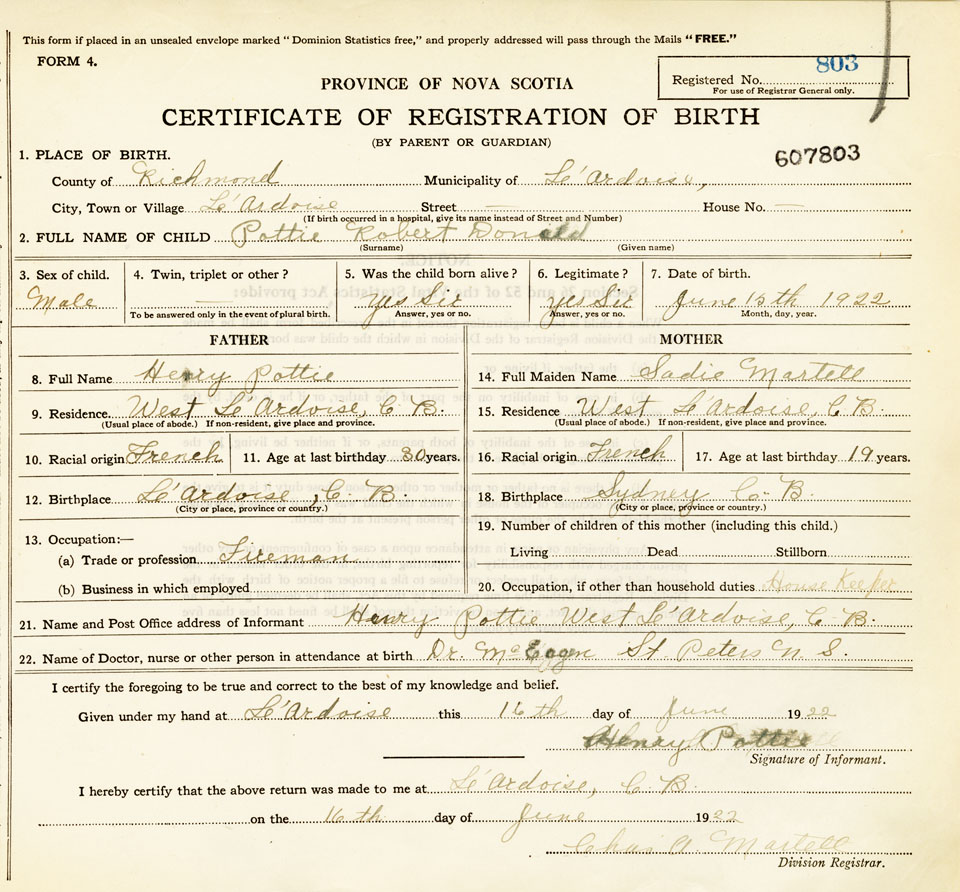 This form if placed in an unsealed envelope marked "Dominion Statistics free," and properly addressed will pass through the Mails "FREE."
FORM 4.
803
Registered No.
For use of Registrar General only.
PROVINCE OF NOVA SCOTIA
CERTIFICATE OF REGISTRATION OF BIRTH
(BY PARENT OR GUARDIAN)
607803
1. PLACE OF BIRTH.
County of Richmond Municipality of Le'Ardoise,
City, Town or Village Le'Ardoise Street — House No. —
(If birth occurred in a hospital, give its name instead of Street and Number)
2. FULL NAME OF CHILD Pottie Robert Donald
(Surname) (Given name)
3. Sex of child. 4. Twin, triplet or other? 5. Was the child born alive? 6. Legitimate? 7. Date of birth.
Male — yes Sir yes Sir June 15th 1922
To be answered only in the event of plural birth. Answer, yes or no. Answer, yes or no. Month, day, year.
FATHER MOTHER
8. Full Name Henry Pottie 14. Full Maiden Name Sadie Martell
9. Residence. West Le'Ardoise, C. B. 15. Residence West Le'Ardoise, C. B.
(Usual place of abode.) If non-resident, give place and province. (Usual place of abode.) If non-resident, give place and province.
10. Racial origin French 11. Age at last birthday 30 years. 16. Racial origin French 17. Age at last birthday 19 years.
12. Birthplace Le'Ardoise, C. B. 18. Birthplace Sydney C. B.
(City or place, province or country.) (City or place, province or country.)
13. Occupation:— 19. Number of children of this mother (including this child.)
(a) Trade or profession Fireman Living Dead Stillborn
(b) Business in which employed 20. Occupation, if other than household duties House Keeper
21. Name and Post Office address of Informant Henry Pottie West Le'Ardoise, C. B.
22. Name of Doctor, nurse or other person in attendance at birth Dr. St. Peters N. S.
I certify the foregoing to be true and correct to the best of my knowledge and belief.
Given under my hand at Le'Ardoise this 16th day of June 1922
Henry Pottie
Signature of Informant.
I hereby certify that the above return was made to me at Le'Ardoise, C. B.
on the 16th day of June 1922
Chas A. Martell
Division Registrar.